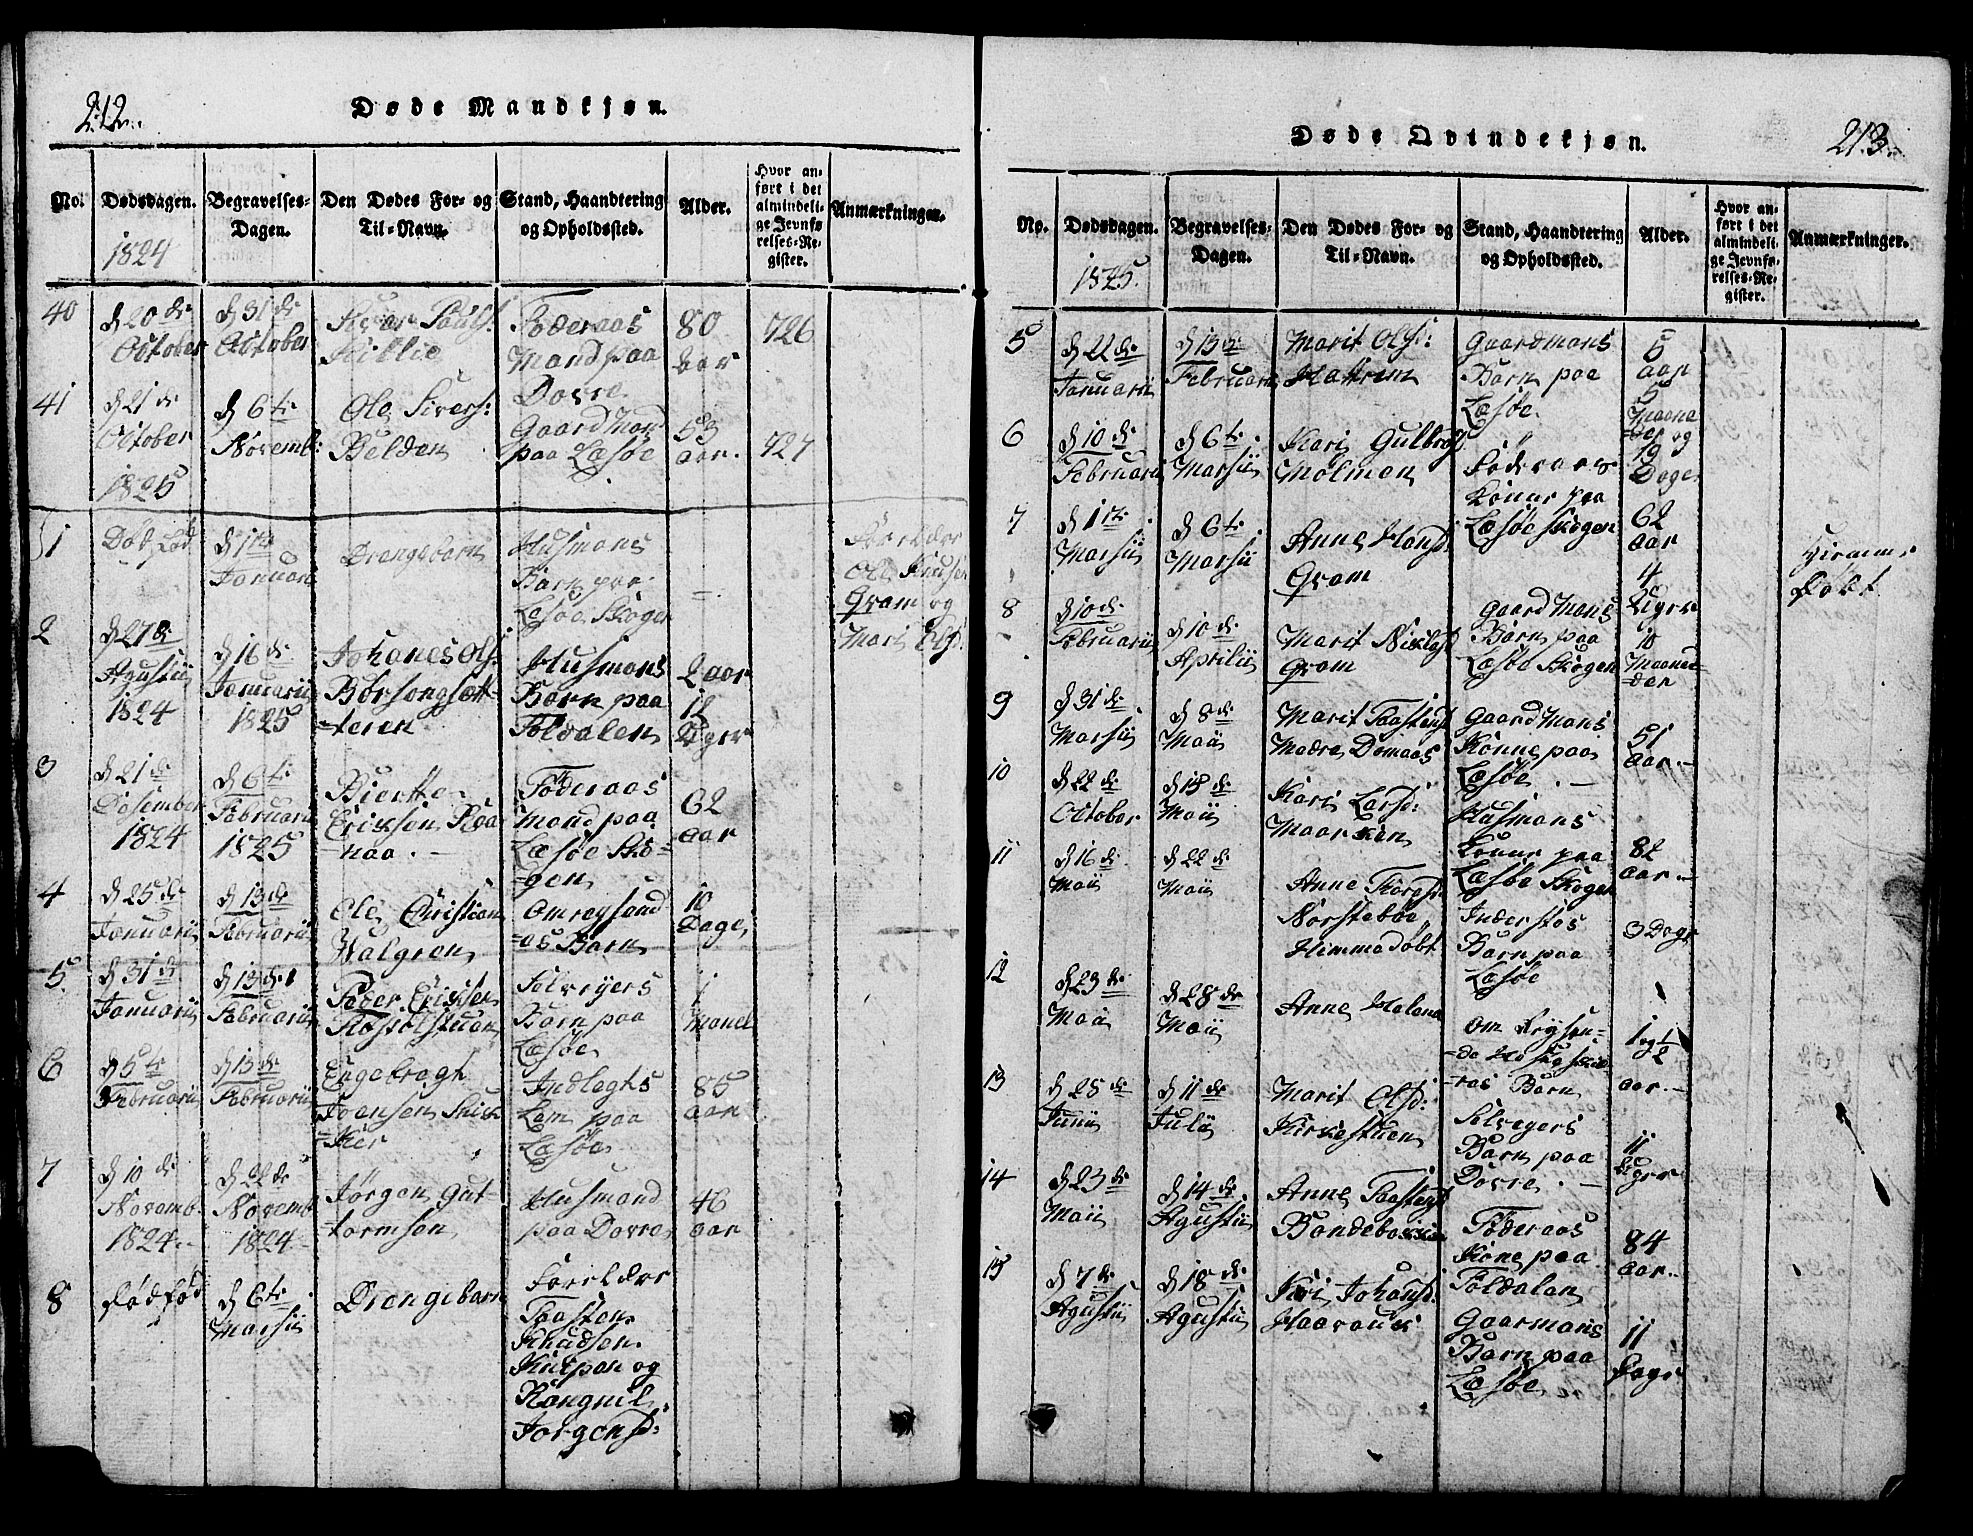 212.
Døde Mandkjøn.
No.
Dødsdagen.
1824
Begravelses-
Dagen.
Den Dødes For- og
Til-Navn.
Stand, Haandtering
og Opholdssted.
Alder.
Hvor an-
ført i det
almindeli-
ge Jevnfø-
relses-Re-
gister.
Anmærkninger.
40
d 20 de
October
d 31 de
October
Killie
Føderaas
Mand paa
Dovre
80
aar
726
41
d 21 de
October
d 6 te
Novemb:
Ole Sivers:
Belden
Gaard Man
paa Læsøe
53
aar.
727
1825
1
Død fød
d 1 te
Januari
Drengebarn
Husmans
Barn paa
Læsøe Skogen
Forelder
Ole Knuse
Gram og
Mari Olsd.
2
d 27 de
Agustii
1824
d 16 de
Januarii
1825
Johanes Ols:
Børsongsæt-
=teren
Husmans
Barn paa
Foldalen
2 aar
12
Uger
3
d 21 de
Desember
1824
d 6 te
Februari
1825
Bierthe
Erixsen Raa
=naa.
Føderaas
Mand paa
Læsøe Sko-
=gen
62
aar
4
d 25 de
Januarii
d 13 de
Februarii
Ole Christian
Walgren
Omreysend
=es Barn
10
Dage
5
d 31 de
Januarii
d 13 de
Februarii
Peder Erixsen
Røsølstuen
Selveyers
Barn paa
Læsøe
1
Maned
6
d 5 te
Februarii
d 13 de
Februarii
Engebregt
Joensen Skik
=Ker
Indlagts
Lem paa
Læsøe
85
aar
7
d 10 de
Novemb.
1824.
d 22 de
Novemb
1824
Jørgen Gut-
=tormsen
Husmand
paa Dovre
46
aar
8
død fød
d 6 te
Marsii
Drengebarn
Forelder
Taasten
Knudsen
Kulpen og
Rangnil
Jorgensd:
213.
Døde Qvindekjøn.
No.
Dødsdagen.
1825.
Begravelses-
Dagen.
Den Dødes For- og
Til-Navn.
Stand, Haandtering
og Opholdssted.
Alder.
Hvor an-
ført i det
almindeli-
ge Jevnfø-
relses-Re-
gister.
Anmærkninger.
5
d 22 de
Januarii
d 13 de
Februarii
Marit Olsd:
Hattrem
Gaardmans
Barn paa
Læsøe
5
aar
5
Maane
=der og
19
Dage
6
d 10 de
Februarii
d 6 te
Marsii
Kari Gulbrd
Mølmen
Føderaas
Konne paa
Læsøe Skogen
62
aar
7
d 1 te
Marsii
d 6 te
Marsii
Anne Hansd
Gram
Gaard Mans
Barn paa
Læsøe Skogen
4
Uger
Hieme
døbt
8
d 10 de
Februarii
d 10 de
Aprilii
Marit Nielsd
Gram
10
Maane
=der
9
d 31 de
Marsii
d 8 de
Maii
Marit Taastensd
Madre Domaas
Gaard Mans
Konne paa
Læsøe
51
aar.
10
d 22 de
October
d 15 de
Maii
Kari Larsd:
Maarken
Husmans
Konne paa
Læsøe Skogen
82
aar.
11
d 16 de
Maii
d 22 de
Maii
Anne Thorsd
Norsteboe
Himmedøbt
Inderstes
Barn paa
Læsøe
3 Dage
12
d 23 de
Maii
d 28 de
Maii
Anne Halena
Om Reysen-
=de
=ras Barn
1 og 1/2
aar.
13
d 25 de
Junii
d 11 de
Julii
Marit Olsd:
Kirkestuen
Selvegers
Barn paa
Dovre.
11
Uger
14
d 23 de
Maii
d 14 de
Agustii
Anne Taastensd
Føderaas
Kone paa
Foldalen
84
aar.
15
d 7 de
Agustii
d 18 de
Agustii
Kari Johansd:
Gaarmans
Barn paa
Læsøe
11
Dage